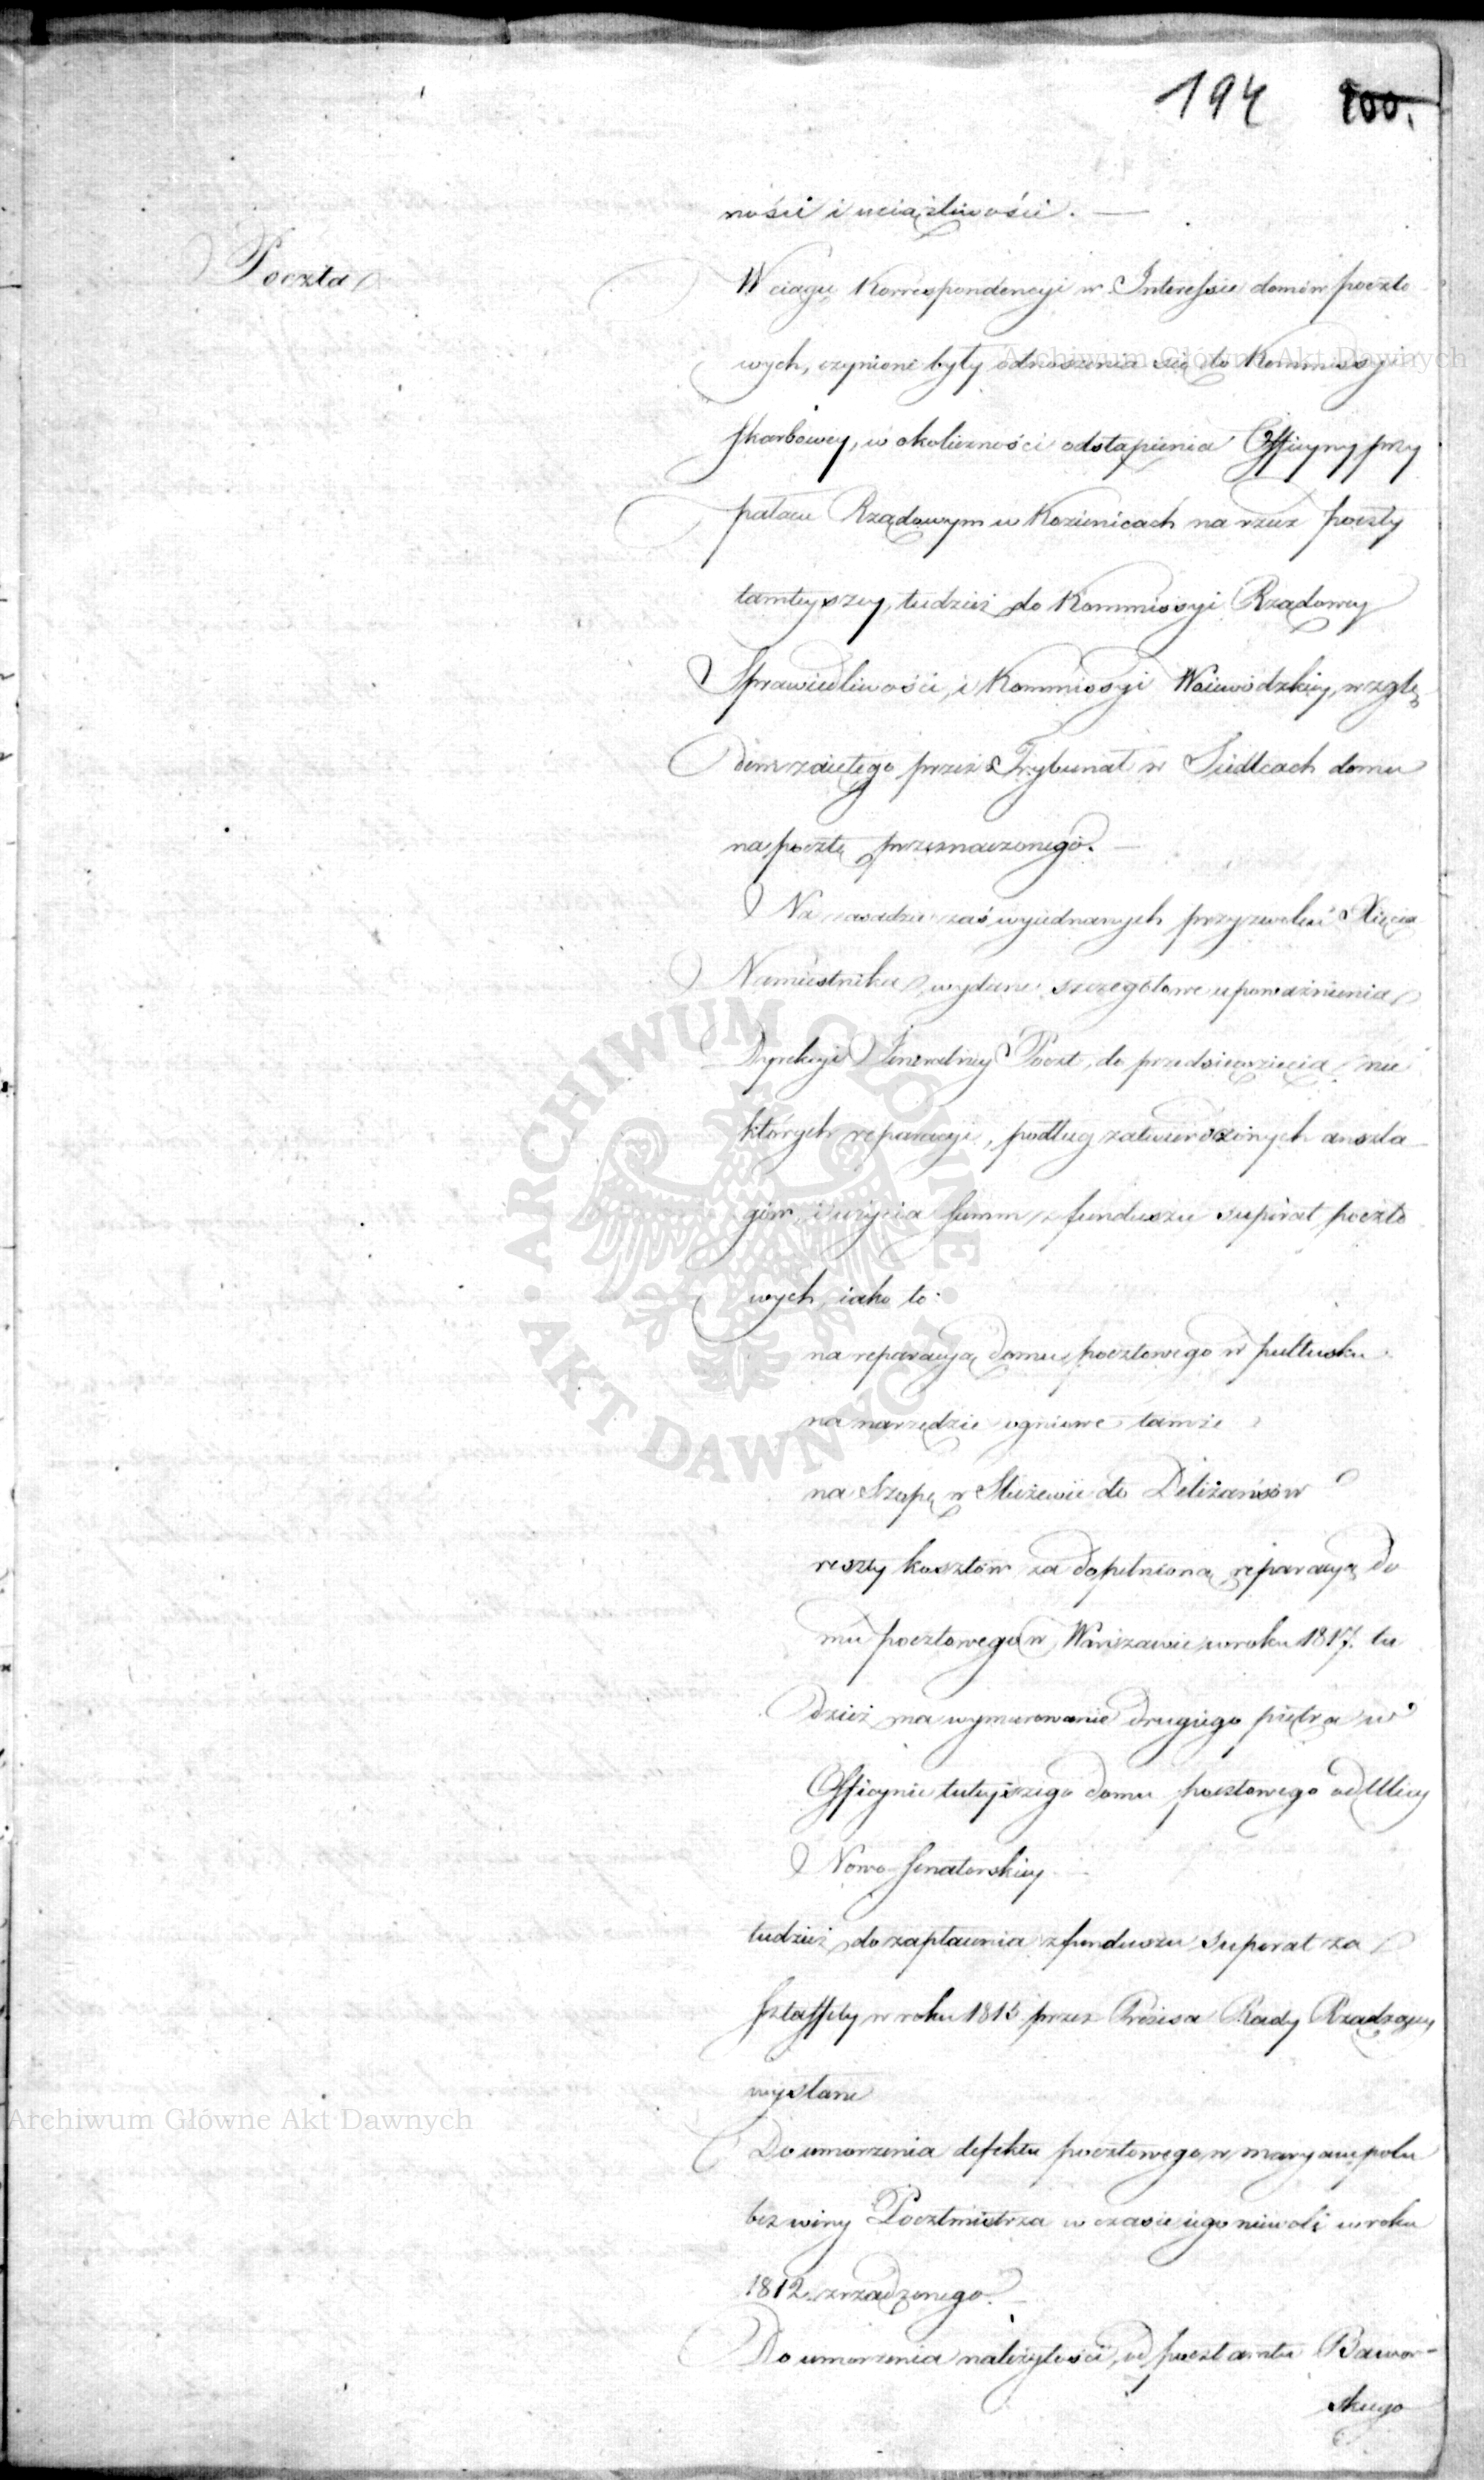 194 100.
ności i uciążliwości. —
Poczta
W ciągu Korrespondencyi w Interessie domów poczto
wych, czynione były odnoszenia się do Kommissyi
Skarbowey, w okoliczności odstąpienia Officyny przy
pałacu Rządowym w Kozienicach na rzecz poczty
tamteyszey, tudzież do Kommissyi Rządowey
Sprawiedliwości, i Kommissyi Woiewódzkiey, wzglę
dem zaiętego przez Trybunał w Siedlcach domu
na pocztę przeznaczonego. —
Na zasadzie zaś wyiednanych przyzwoleń Xięcia
Namiestnika, wydane szczegółowe upoważnienia
Dyrekcyi Jeneralney Poczt, do przedsięwzięcia nie
których reparacyi, podług zatwierdzonych anszla
gów, i użycia summ z funduszu superat poczto
wych, iako to:
na reparacyą domu pocztowego w pułtusku
na narzędzie ogniowe tamże
na Szopę w Służewie do Deliżansów
reszty kosztów za dopełnioną reparacyą do
mu pocztowego w Warszawie w roku 1817. tu
dzież na wymurowanie drugiego piętra w
Officynie tuteyszego domu pocztowego od Ulicy
Nowo-Senatorskiey
tudzież do zapłacenia z funduszu superat za
sztaffety w roku 1815 przez Prezesa Rady Rządzącey
wysłane
Do umorzenia defektu pocztowego w maryampolu
bez winy Pocztmistrza w czasie iego niewoli w roku
1812 zrządzonego. —
Do umorzenia należytości, od pocztamtu Bawor-
skiego
Archiwum Główne Akt Dawnych
ARCHIWUM GŁÓWNE AKT DAWNYCH
Archiwum Główne Akt Dawnych